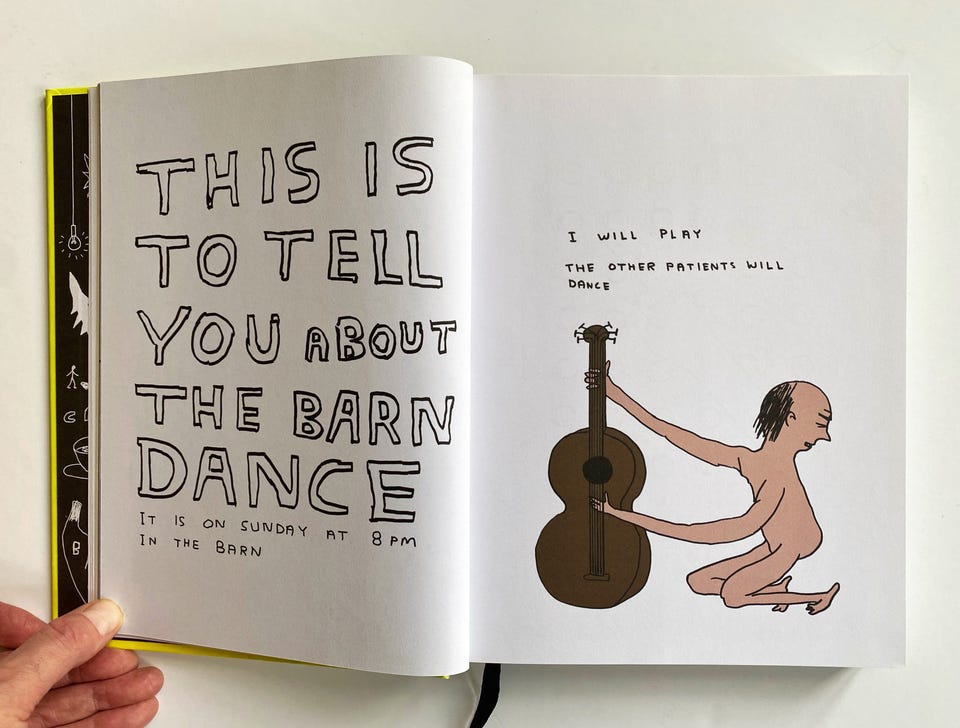 THIS IS
TO TELL
YOU ABOUT
THE BARN
DANCE
IT IS ON SUNDAY AT 8 PM
IN THE BARN
I WILL PLAY
THE OTHER PATIENTS WILL
DANCE